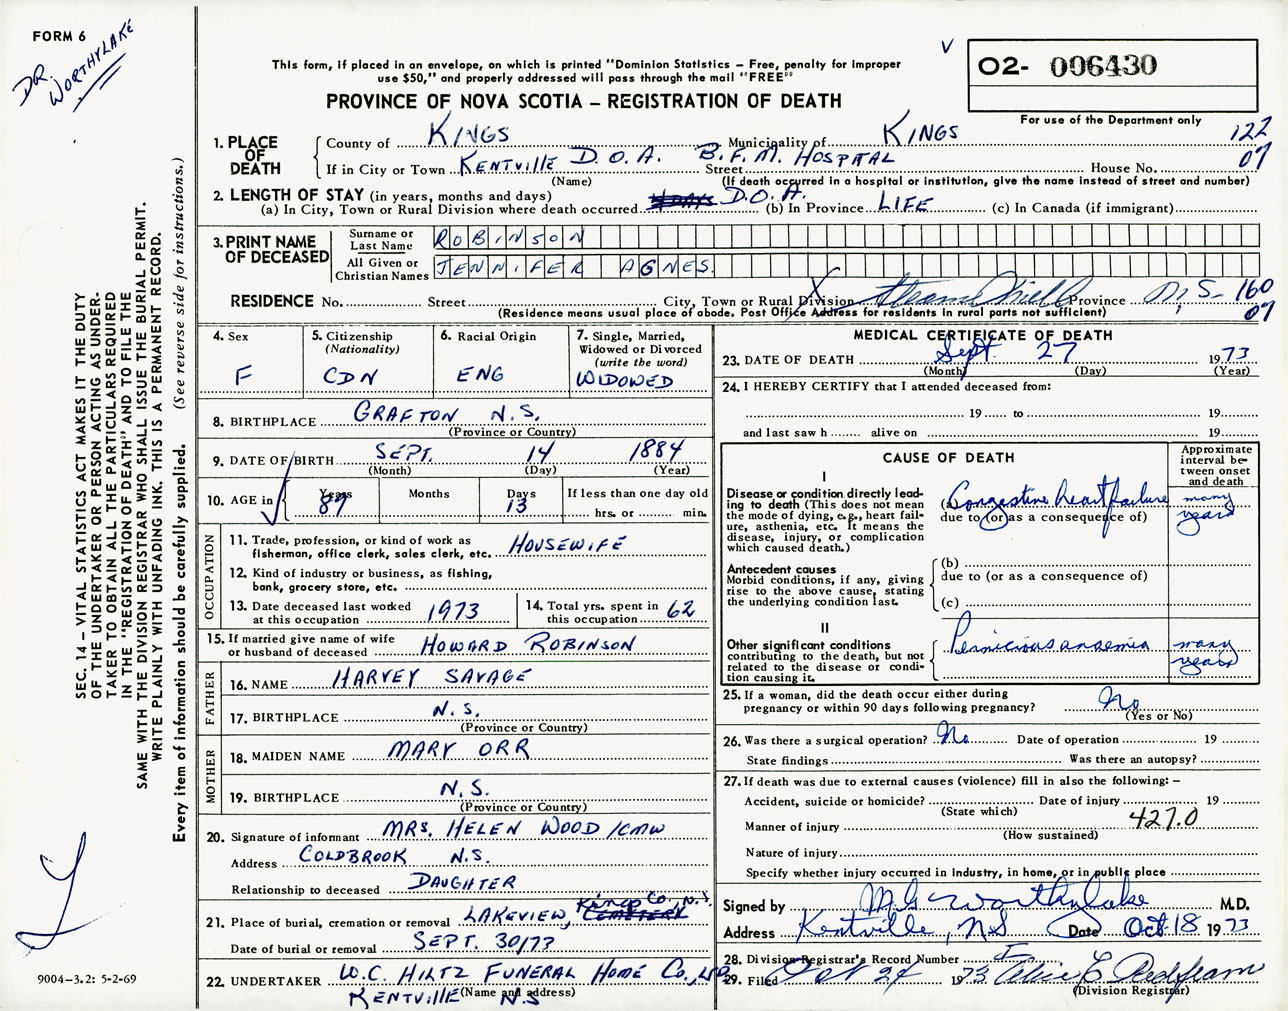 FORM 6
DR WORTHYLAKE
This form, if placed in an envelope, on which is printed "Dominion Statistics – Free, penalty for improper
use $50," and properly addressed will pass through the mail "FREE"
PROVINCE OF NOVA SCOTIA – REGISTRATION OF DEATH
O2- 006430
For use of the Department only
122
07
1. PLACE OF DEATH
County of KINGS Municipality of KINGS
If in City or Town KENTVILLE D.O.A. B.F.M. HOSPITAL Street House No.
(Name) (If death occurred in a hospital or institution, give the name instead of street and number)
2. LENGTH OF STAY (in years, months and days)
(a) In City, Town or Rural Division where death occurred D.O.A. (b) In Province LIFE (c) In Canada (if immigrant)
3. PRINT NAME OF DECEASED
Surname or Last Name ROBINSON
All Given or Christian Names JENNIFER AGNES.
RESIDENCE No. Street City, Town or Rural Division Steam Mill Province N.S. 160
07
(Residence means usual place of abode. Post Office Address for residents in rural parts not sufficient)
4. Sex
F
5. Citizenship
(Nationality)
CDN
6. Racial Origin
ENG
7. Single, Married,
Widowed or Divorced
(write the word)
WIDOWED
8. BIRTHPLACE GRAFTON N.S.
(Province or Country)
9. DATE OF BIRTH SEPT. 14 1884
(Month) (Day) (Year)
10. AGE in
Years 89
Months
Days 13
If less than one day old
hrs. or min.
OCCUPATION
11. Trade, profession, or kind of work as
fisherman, office clerk, sales clerk, etc. HOUSEWIFE
12. Kind of industry or business, as fishing,
bank, grocery store, etc.
13. Date deceased last worked
at this occupation 1973
14. Total yrs. spent in
this occupation 62
15. If married give name of wife
or husband of deceased HOWARD ROBINSON
FATHER
16. NAME HARVEY SAVAGE
17. BIRTHPLACE N.S.
(Province or Country)
MOTHER
18. MAIDEN NAME MARY ORR
19. BIRTHPLACE N.S.
(Province or Country)
20. Signature of informant MRS. HELEN WOOD /CMW
Address COLDBROOK N.S.
Relationship to deceased DAUGHTER
21. Place of burial, cremation or removal LAKEVIEW, CEMETERY Kings Co., N.S.
Date of burial or removal SEPT. 30/73
22. UNDERTAKER W.C. HILTZ FUNERAL HOME CO., LTD
KENTVILLE N.S
(Name and address)
MEDICAL CERTIFICATE OF DEATH
23. DATE OF DEATH Sept. 27 1973
(Month) (Day) (Year)
24. I HEREBY CERTIFY that I attended deceased from:
19 to 19
and last saw h alive on 19
CAUSE OF DEATH
Approximate
interval be-
tween onset
and death
I
Disease or condition directly lead-
ing to death (This does not mean
the mode of dying, e.g., heart fail-
ure, asthenia, etc. It means the
disease, injury, or complication
which caused death.)
(a) Congestive heart failure many years
due to (or as a consequence of)
Antecedent causes
Morbid conditions, if any, giving
rise to the above cause, stating
the underlying condition last.
(b)
due to (or as a consequence of)
(c)
II
Other significant conditions
contributing to the death, but not
related to the disease or condi-
tion causing it.
Pernicious anaemia many years
25. If a woman, did the death occur either during
pregnancy or within 90 days following pregnancy? No
(Yes or No)
26. Was there a surgical operation? No Date of operation 19
State findings Was there an autopsy?
27. If death was due to external causes (violence) fill in also the following: –
Accident, suicide or homicide? Date of injury 19
(State which)
427.0
Manner of injury
(How sustained)
Nature of injury
Specify whether injury occurred in Industry, in home, or in public place
Signed by M G Worthylake M.D.
Address Kentville, NS Date Oct 18 1973
28. Division Registrar's Record Number
29. Filed Oct 24 1973
(Division Registrar)
SEC. 14 – VITAL STATISTICS ACT MAKES IT THE DUTY
OF THE UNDERTAKER OR PERSON ACTING AS UNDER-
TAKER TO OBTAIN ALL THE PARTICULARS REQUIRED
IN THE "REGISTRATION OF DEATH" AND TO FILE THE
SAME WITH THE DIVISION REGISTRAR WHO SHALL ISSUE THE BURIAL PERMIT.
WRITE PLAINLY WITH UNFADING INK. THIS IS A PERMANENT RECORD.
Every item of information should be carefully supplied. (See reverse side for instructions.)
9004-3.2: 5-2-69